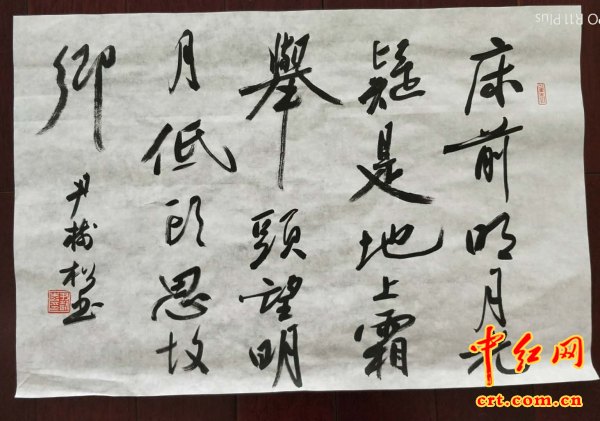 床前明月光
疑是地上霜
舉頭望明
月低頭思故
鄉
尹樹松書
PO R11 Plus
中红网
crt.com.cn